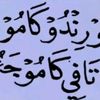 وْرِنْدُوْ كَامُوْ
تَافِيْ كَامُوْ